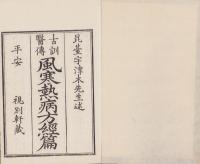 昆臺宇津木先生述
古訓
醫傳
風寒熱病方經篇
平安 視別軒藏